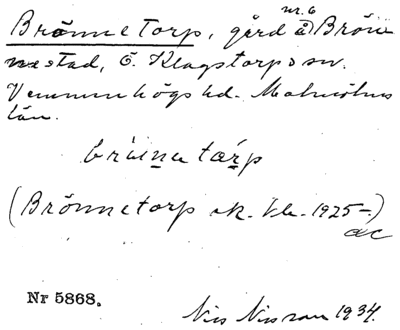 nr. 6
Brönnetorp, gård å Brön-
nestad, Ö. Klagstorps sn.
Vemmenhögs hd. Malmöhus
län.
tärp
(Brönnetorp sk. 1925-.)
Nr 5868.
Nils Nilsson 1934.